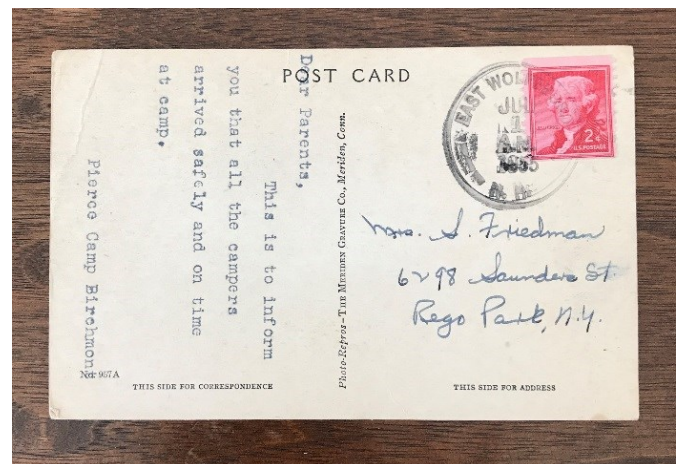 POST CARD
Dear Parents,
This is to inform
you that all the campers
arrived safely and on time
at camp.
Pierce Camp Birchmont
No. 967A
THIS SIDE FOR CORRESPONDENCE
Photo-Repros—THE MERIDEN GRAVURE CO., Meriden, Conn.
EAST
JUL
1
A.M.
2¢
U.S. POSTAGE
Mrs. S. Friedman
6298 Saunders St.
Rego Park, N.Y.
THIS SIDE FOR ADDRESS